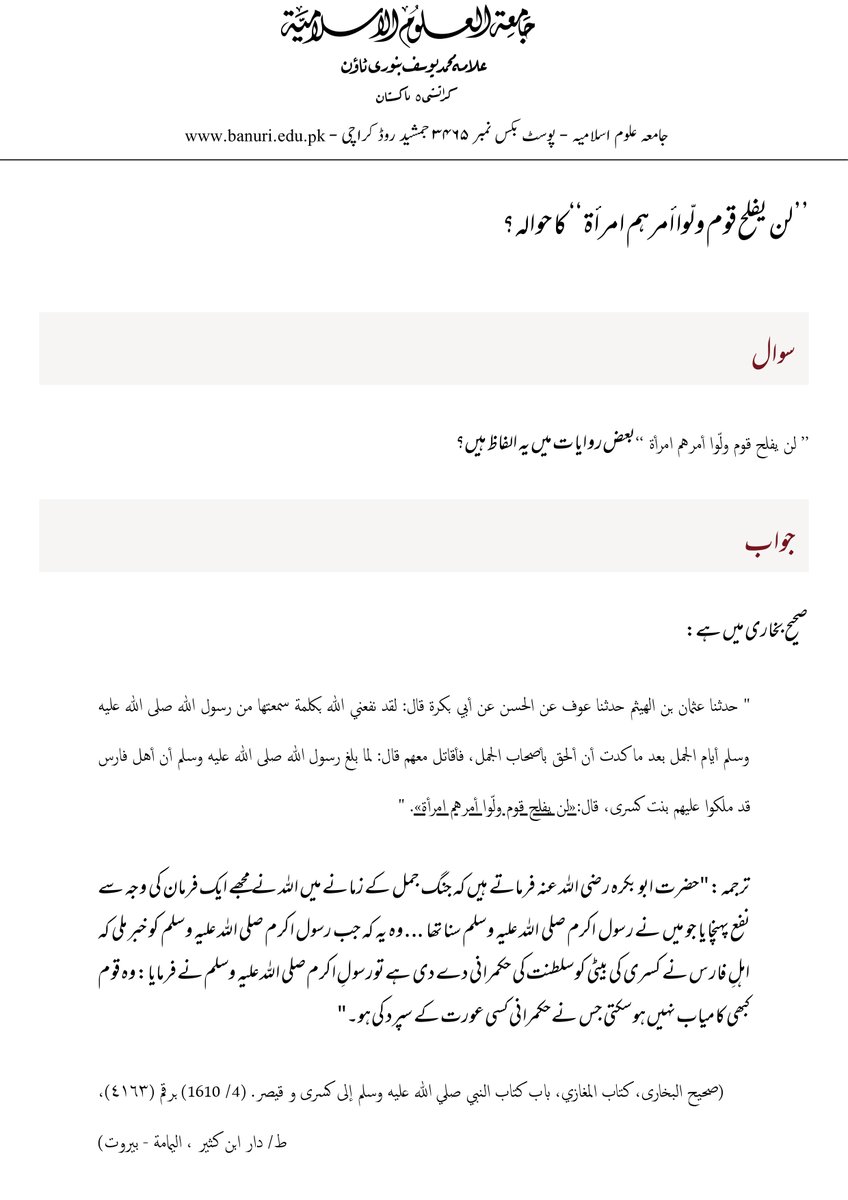 جامعة العلوم الإسلامية
علامہ محمد یوسف بنوری ٹاؤن
کراتشي ٥ باکستان
جامعہ علوم اسلامیہ - پوسٹ بکس نمبر ۳۴۶۵ جمشید روڈ کراچی - www.banuri.edu.pk
’’لن یفلح قوم ولّوا أمرہم امرأۃ‘‘ کا حوالہ ؟
سوال
’’ لن يفلح قوم ولّوا أمرهم امرأة ‘‘ بعض روایات میں یہ الفاظ ہیں؟
جواب
صحیح بخاری میں ہے :
" حدثنا عثمان بن الهيثم حدثنا عوف عن الحسن عن أبي بكرة قال: لقد نفعني الله بكلمة سمعتها من رسول الله صلى الله عليه
وسلم أيام الجمل بعد ما كدت أن ألحق بأصحاب الجمل، فأقاتل معهم قال: لما بلغ رسول الله صلى الله عليه وسلم أن أهل فارس
قد ملكوا عليهم بنت كسرى، قال:«لن يفلح قوم ولّوا أمرهم امرأة». "
ترجمہ : "حضرت ابو بکرہ رضی اللہ عنہ فرماتے ہیں کہ جنگ جمل کے زمانے میں اللہ نے مجھے ایک فرمان کی وجہ سے
نفع پہنچایا جو میں نے رسول اکرم صلی اللہ علیہ وسلم سنا تھا ... وہ یہ کہ جب رسول اکرم صلی اللہ علیہ وسلم کو خبر ملی کہ
اہلِ فارس نے کسری کی بیٹی کو سلطنت کی حکمرانی دے دی ہے تو رسولِ اکرم صلی اللہ علیہ وسلم نے فرمایا : وہ قوم
کبھی کامیاب نہیں ہو سکتی جس نے حکمرانی کسی عورت کے سپرد کی ہو۔ "
(صحيح البخاری، كتاب المغازي، باب كتاب النبي صلي الله عليه وسلم إلى كسرى و قيصر. (4/ 1610) برقم (٤١٦٣)،
ط/ دار ابن كثير ، اليمامة - بيروت)